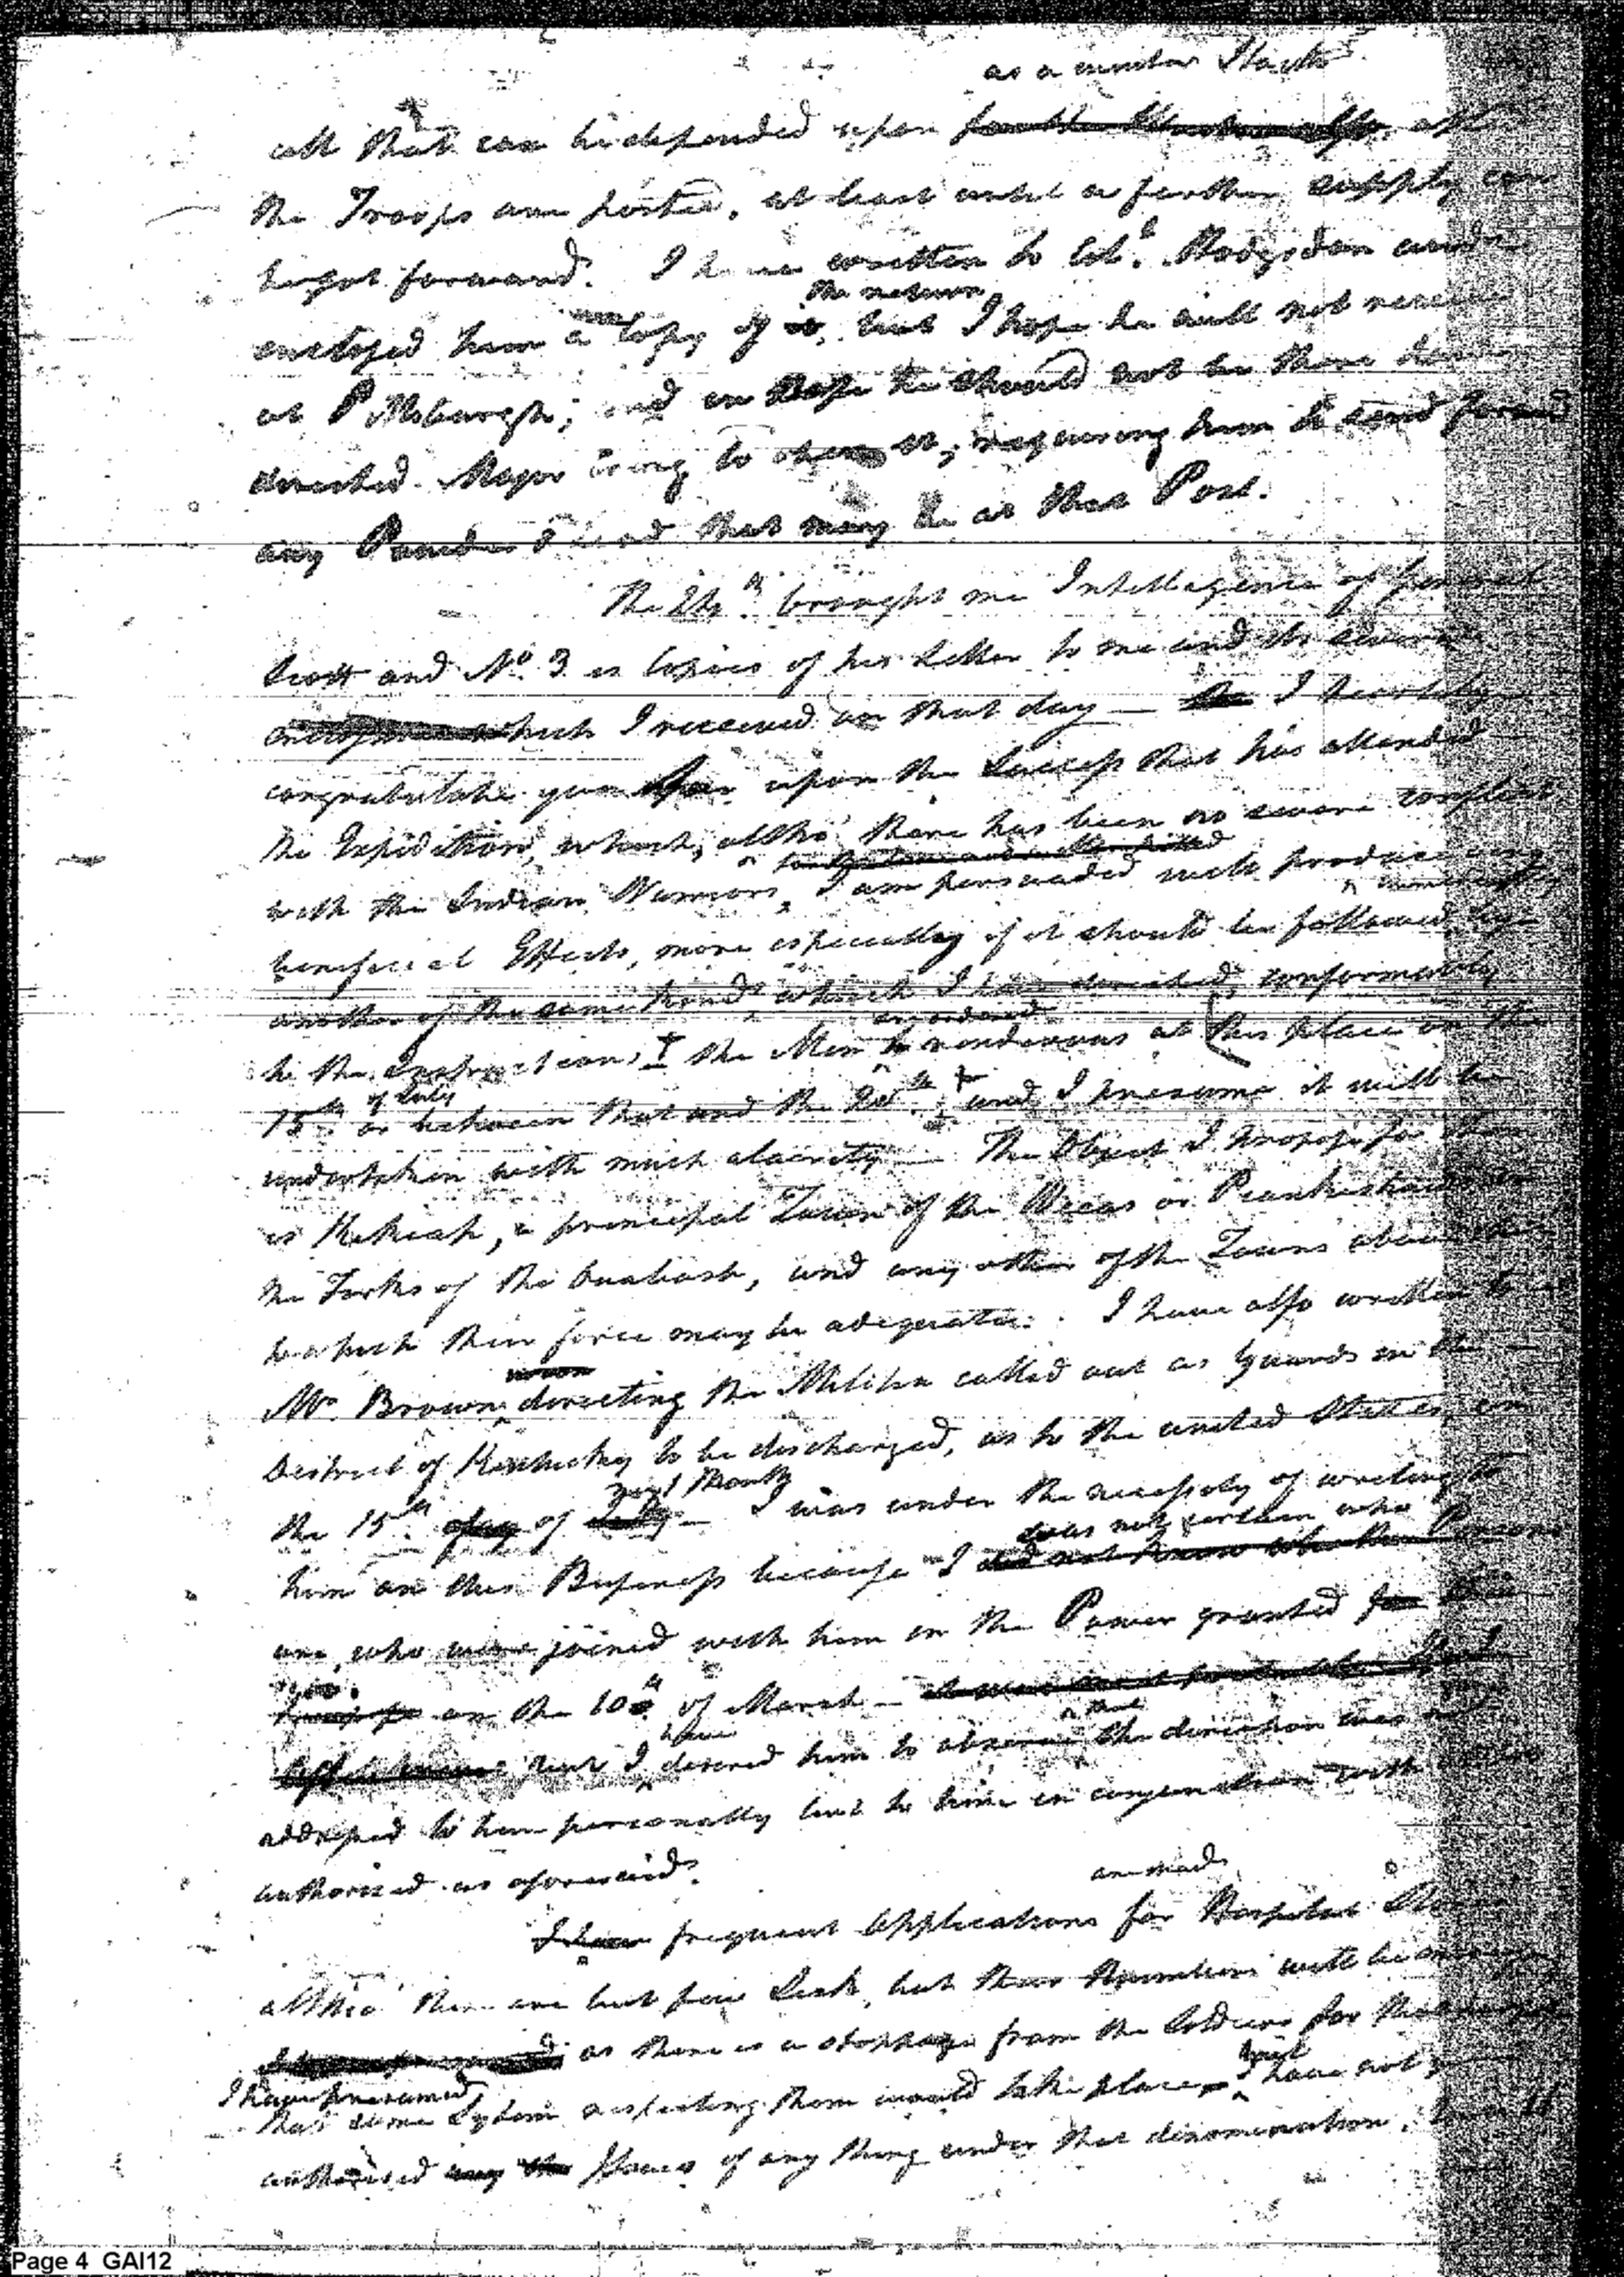 as a number
all that can be depended upon
the Troops are posted, at least until a further supply can
be got forward. I have written to Col. Hodgsdon and
the return
enclosed him a Copy of it, but I hope he will not receive
at Pittsburgh; and in Case he should not be there
directed Major to open it, requiring him to send forward
any Powder & Lead that may be at that Post.
The 24th brought me Intelligence of General
Scott and No. 3 is Copies of his Letter to me and the
which I received on that day — I heartily
congratulate you upon the Success that has attended
the Expedition, which, altho' there has been no severe conflict
with the Indian Warriors, I am persuaded will produce
beneficial Effects, more especially if it should be followed by
another of the same kind, which I have directed, conformably
are ordered
to the Instructions, & the Men to rendezvous at this place on the
of July
15th or between that and the 20th and I presume it will be
undertaken with much alacrity — The Object I propose for them
is Kikiah, a principal Town of the Weeas or Piankishaws
the Forks of the Ouabash, and any other of the Towns
to which their force may be adequate. I have also written to
Mr. Brown, directing the Militia called out as Guards in the
District of Kentucky to be discharged, as to the united States, on
next Month
the 15th day of July — I was under the necessity of writing to
was not certain who
him on this Business because I did not know who the Persons
are, who were joined with him in the Power granted for
on the 10th of March —
have that
but I desired him to observe the direction was not
addressed to him personally but to him in conjunction with
authorised as aforesaid.
are made
I have frequent Applications for Hospital
altho' there are but few Sick, but their Numbers will be
as there is a stoppage from the Soldiers for that
I have presumed but
that some System respecting them would take place, I have not
authorised any the Issues of any thing under that denomination.
Page 4 GAI12